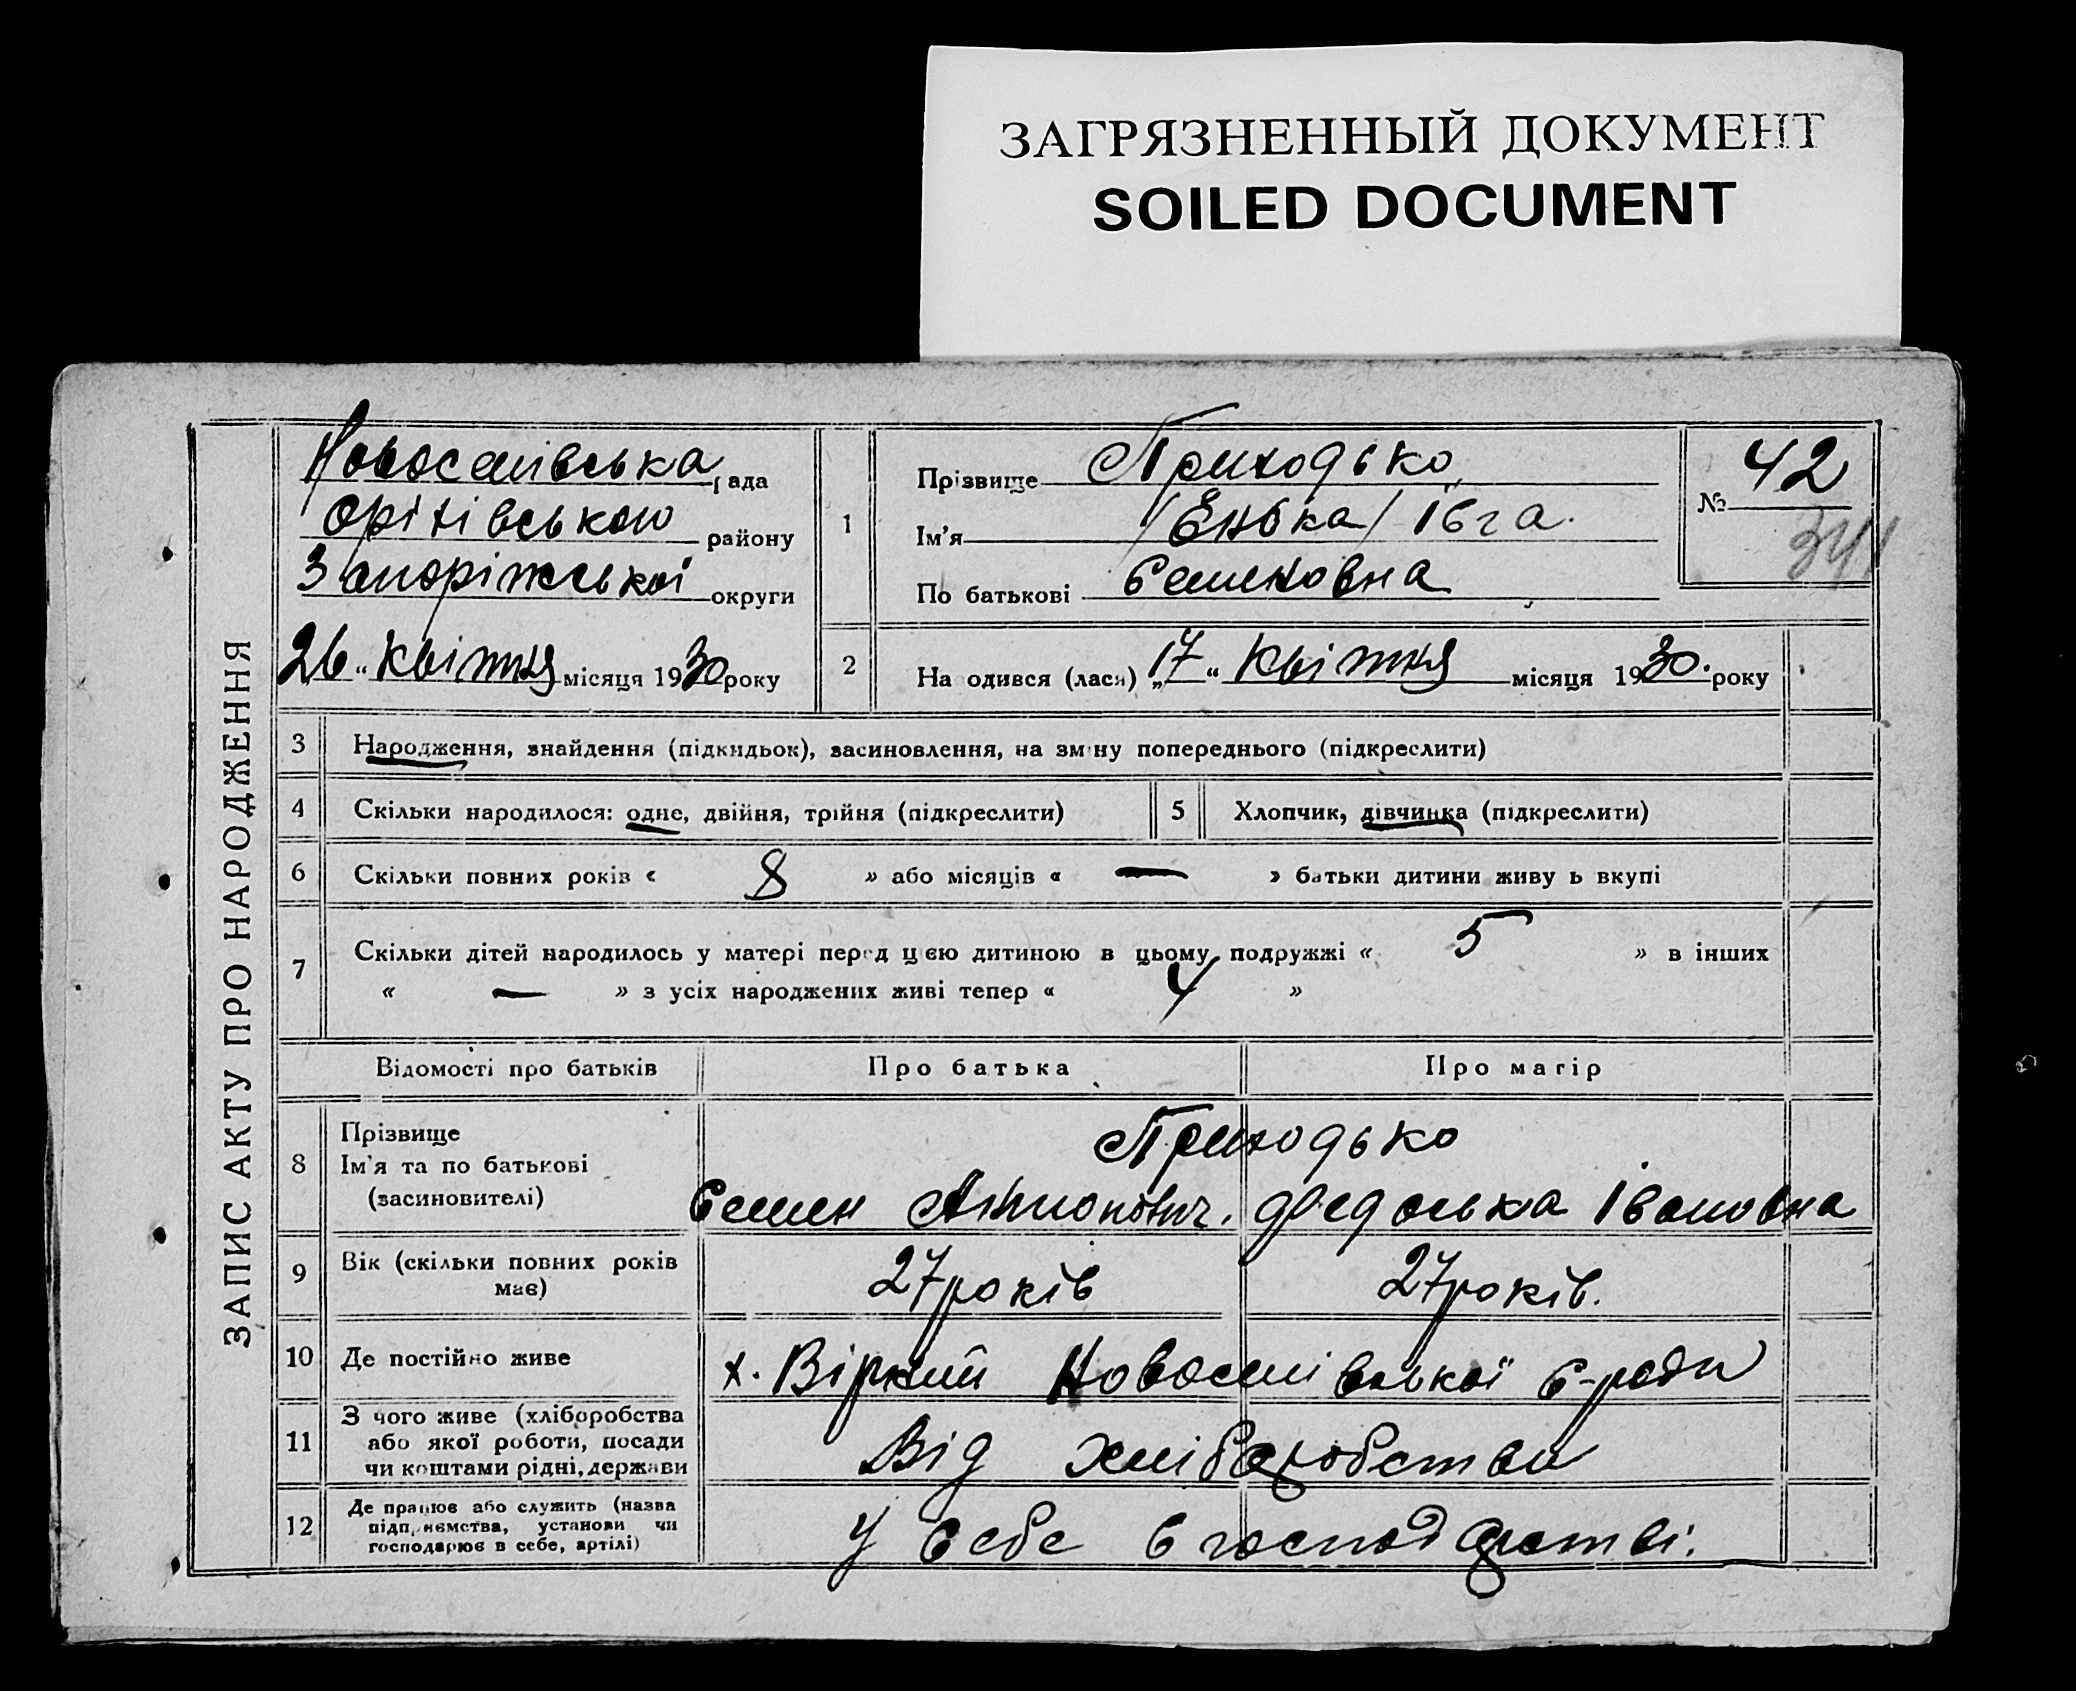 ЗАГРЯЗНЕННЫЙ ДОКУМЕНТ
SOILED DOCUMENT
ЗАПИС АКТУ ПРО НАРОДЖЕННЯ
Новоселівська рада
Оріхівською району
Запоріжської округи
26 “ квітня місяця 1930 року
1
Прізвище Приходько
Ім'я /Євбка/ Івга.
По батькові Семеновна
№ 42
341
2 На одився (лася) „17“ квітня місяця 1930. року
3 Народження, знайдення (підкидьок), засиновлення, на зміну попереднього (підкреслити)
4 Скільки народилося: одне, двійня, трійня (підкреслити)
5 Хлопчик, дівчинка (підкреслити)
6 Скільки повних років « 8 » або місяців « — » батьки дитини живу ь вкупі
7 Скільки дітей народилось у матері перед цією дитиною в цьому подружжі « 5 » в інших
« — » з усіх народжених живі тепер « 4 »
Відомості про батьків Про батька Про матір
8 Прізвище
Ім'я та по батькові
(засиновителі)
Приходько
Семен Антонович. Федоська Івановна
9 Вік (скільки повних років має)
27 років 27 років.
10 Де постійно живе
х. Вірний Новоселівської с-ради
11 З чого живе (хліборобства
або якої роботи, посади
чи коштами рідні, держави
Від хліборобства
12 Де працює або служить (назва
підприємства, установи чи
господарює в себе, артілі)
У себе в господарстві.